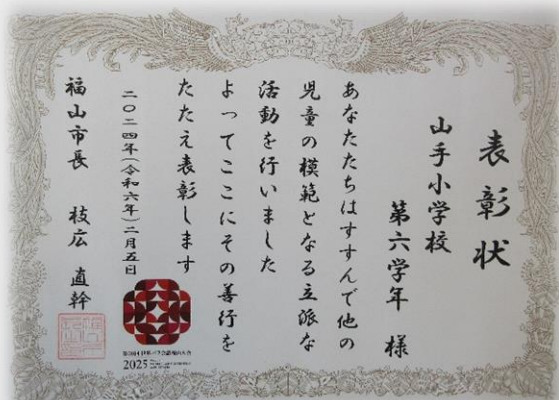 表彰状
山手小学校
第六学年 様
あなたたちはすすんで他の
児童の模範となる立派な
活動を行いました
よってここにその善行を
たたえ表彰します
二〇二四年(令和六年)二月五日
福山市長 枝広 直幹
2025